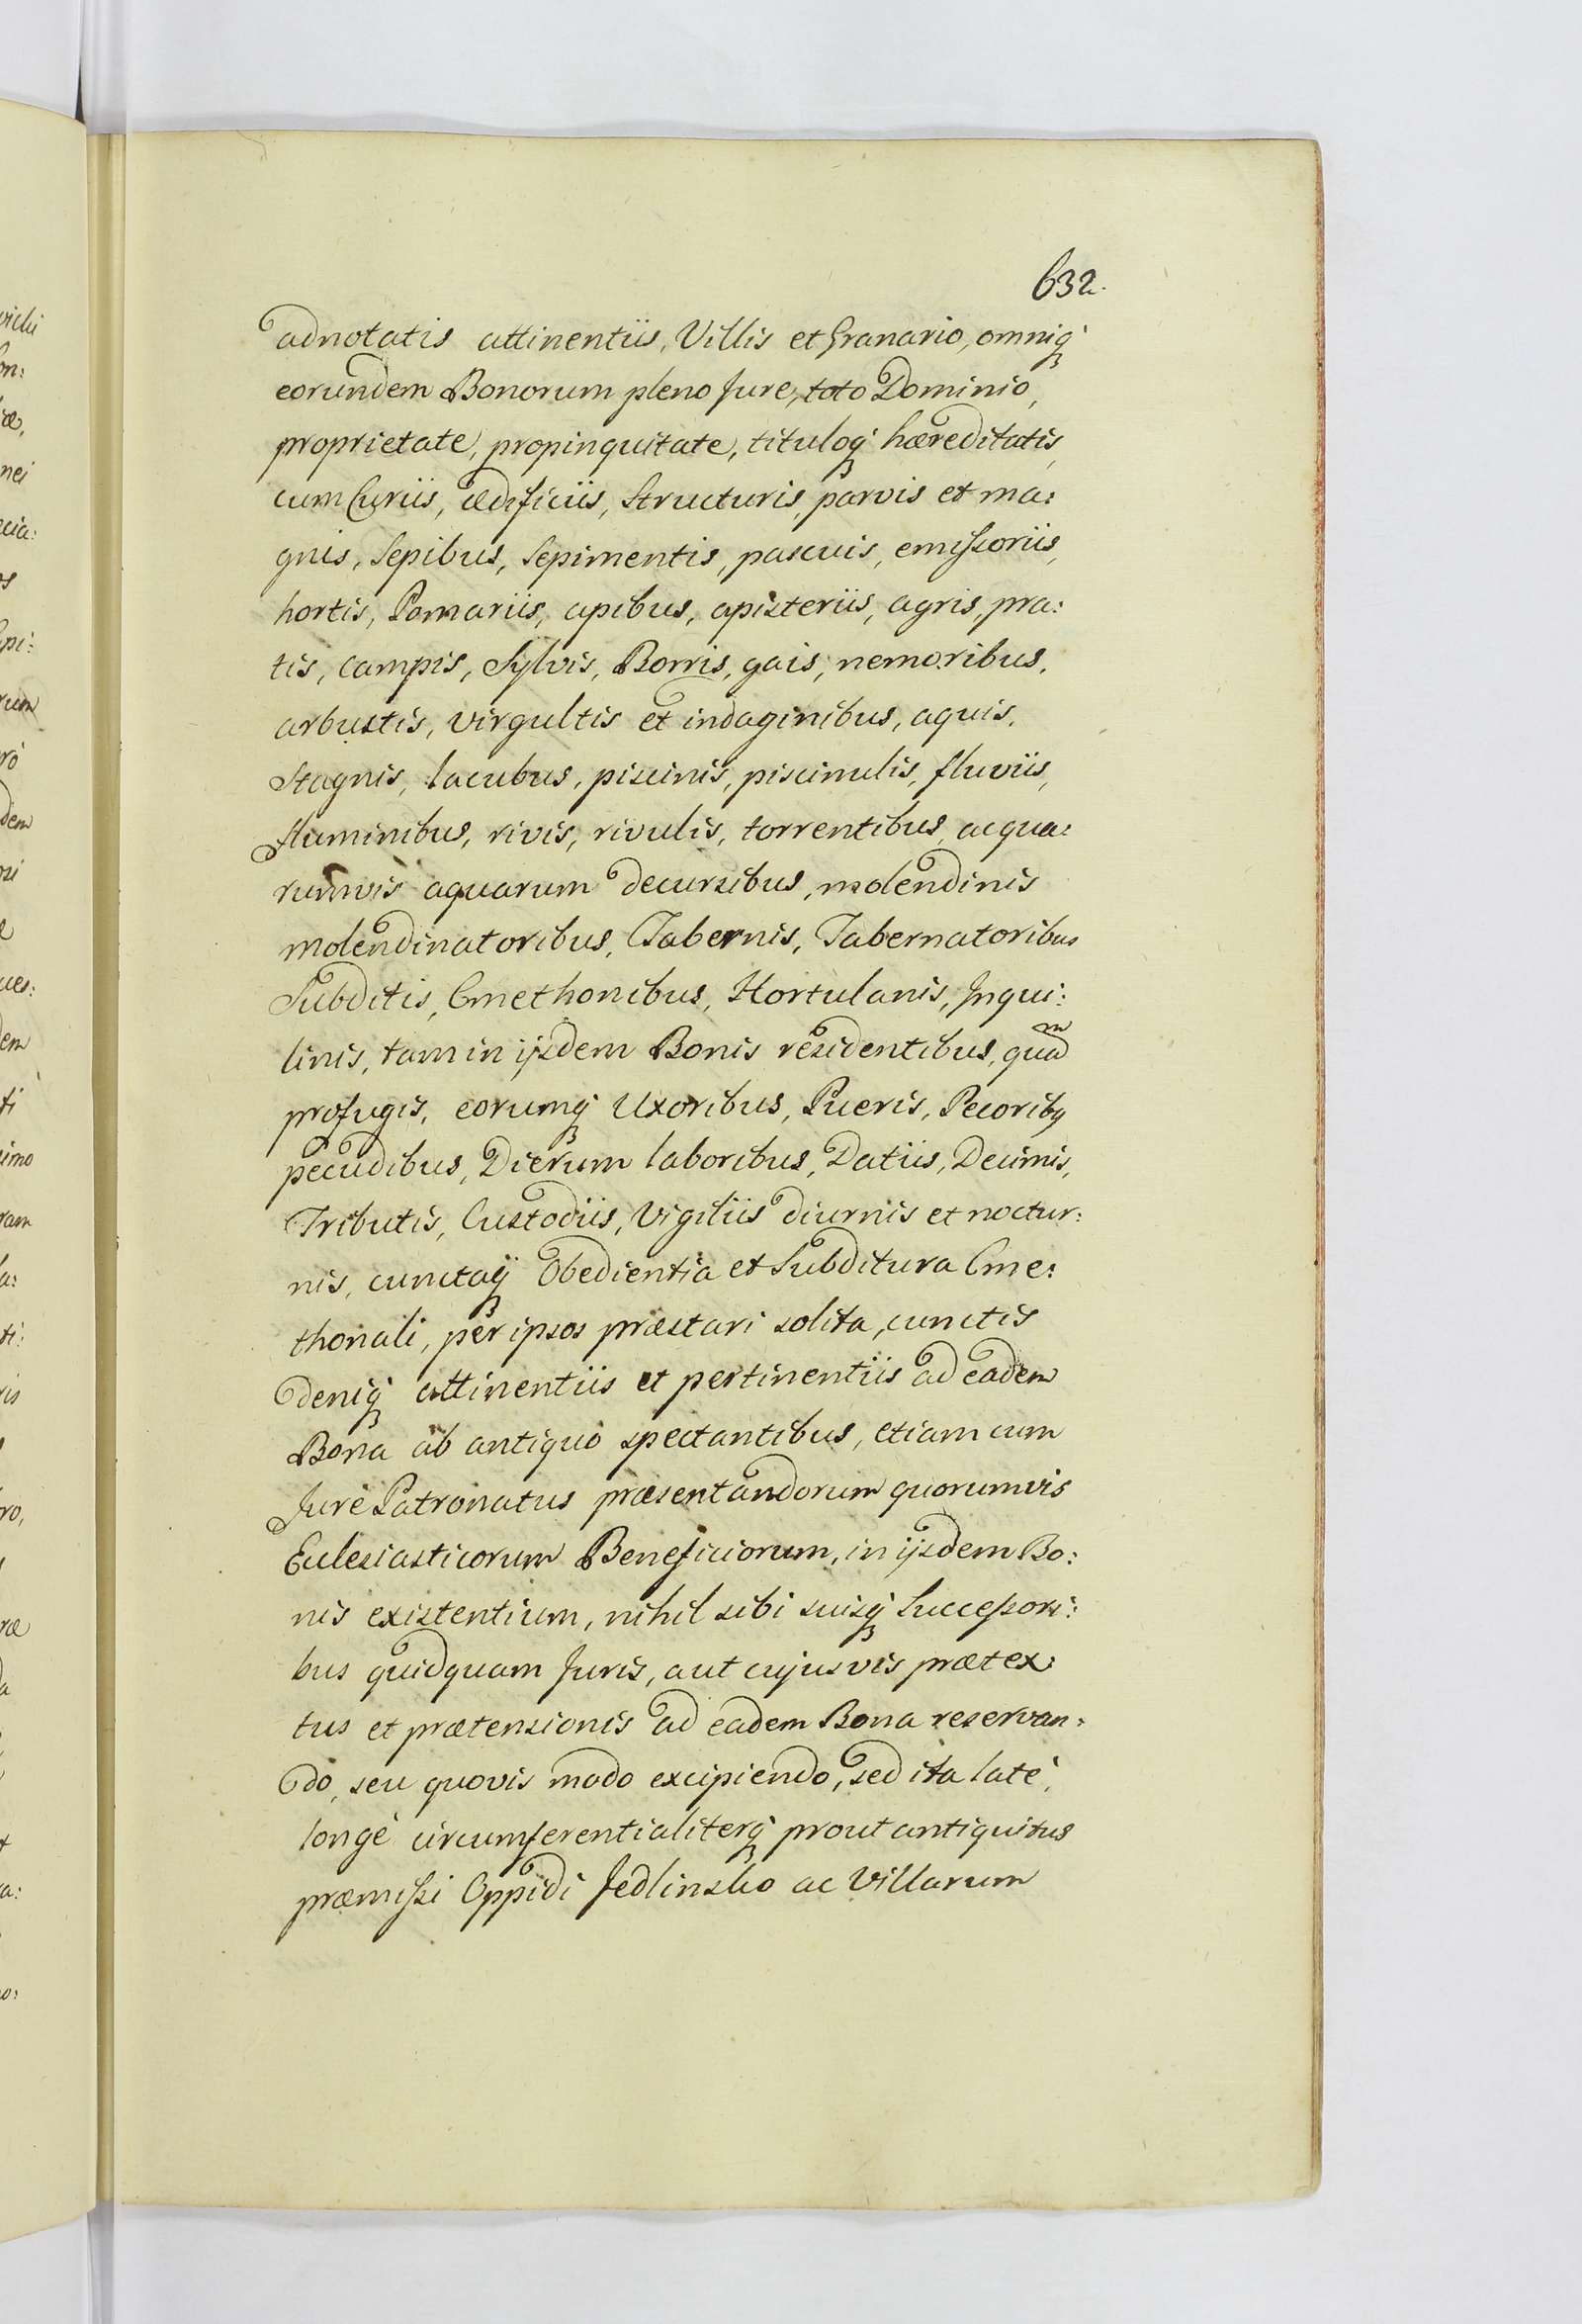 632.
adnotatis attinentiis, Villis et Granario, omniq;
eorundem Bonorum pleno Jure, toto Dominio,
proprietate, propinquitate, tituloq; hæreditatis,
cum Curiis, ædificiis, Structuris, parvis et ma:
gnis, Sepibus, Sepimentis, pascuis, emissoriis,
hortis, Pomariis, apibus, apisteriis, agris, pra:
tis, campis, Sylvis, Borris, gais, nemoribus,
arbustis, virgultis et indaginibus, aquis,
Stagnis, lacubus, piscinis, piscinulis, fluviis,
fluminibus, rivis, rivulis, torrentibus, acqua:
rumvis aquarum decursibus, molendinis
molendinatoribus, Tabernis, Tabernatoribus
Subditis, Cmethonibus, Hortulanis, Inqui:
linis, tam in ijsdem Bonis residentibus, quam
profugis, eorumq; Uxoribus, Pueris, Pecoribq
pecudibus, Dierum laboribus, Datiis, Decimis,
Tributis, Custodiis, Vigiliis diurnis et noctur:
nis, cunctaq; Obedientia et Subditura Cme:
thonali, per ipsos præstari solita, cunctis
deniq; attinentiis et pertinentiis ad eadem
Bona ab antiquo spectantibus, etiam cum
Jure Patronatus præsentandorum quorumvis
Eclesiasticorum Beneficiorum, in ijsdem Bo:
nis existentium, nihil sibi suisq; Successori:
bus quidquam Juris, aut cujusvis prætex:
tus et prætensionis ad eadem Bona reservan:
do, seu quovis modo excipiendo, sed ita latè,
longè circumferentialiterq; prout antiquitus
præmissi Oppidi Jedlinsko ac Villarum